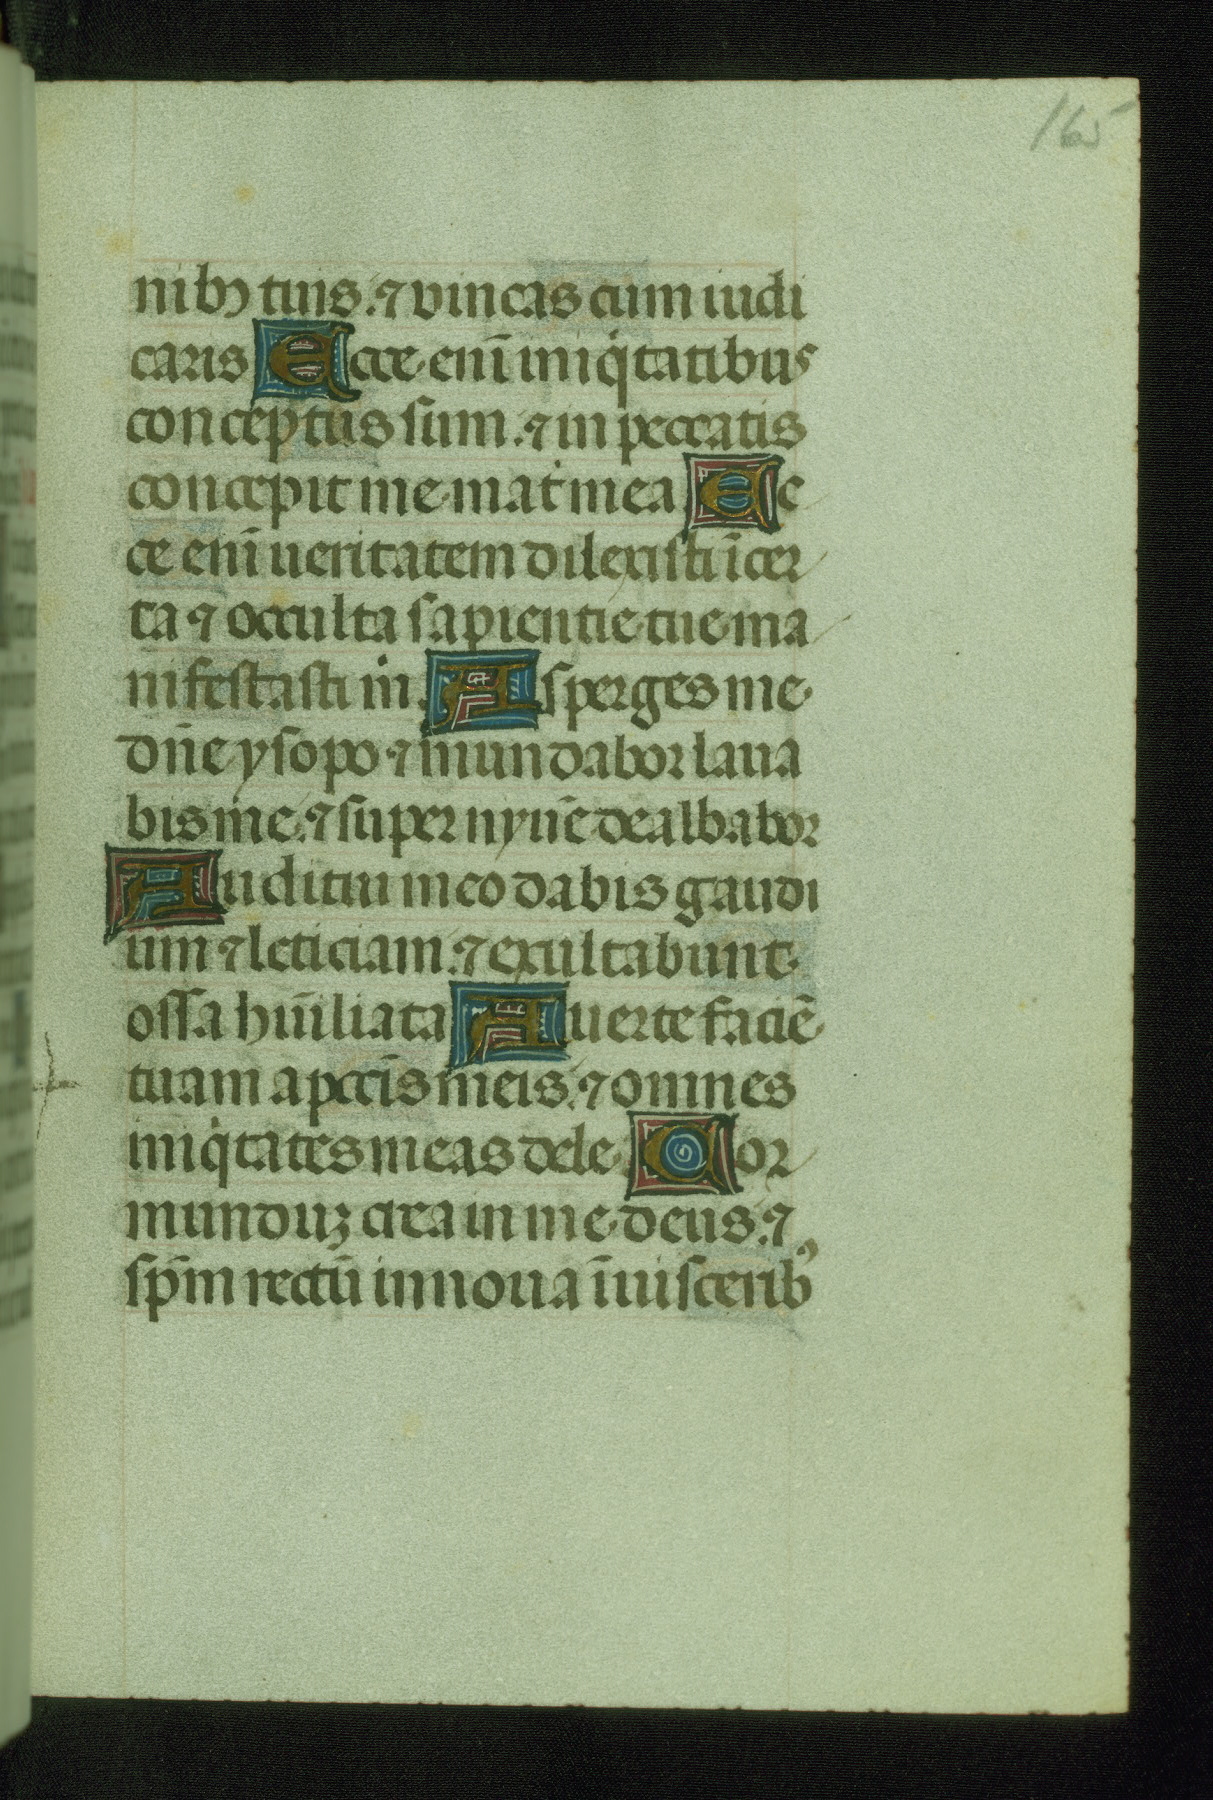 165
nibꝫ tuis. ⁊ vincas cum iudi
caris Ecce enī iniq̇tatibus
conceptus sum. ⁊ in peccatis
concepit me mat̉ mea Ec
ce enī ueritatem dilexisti īcer
ta ⁊ occulta sapientie tue ma
nifestasti m̉. Asperges me
dn̄e ysopo ⁊ mundabor laua
bis me. ⁊ super nyuē dealbabor
Auditui meo dabis gaudi
um ⁊ leticiam. ⁊ exultabunt
ossa hūiliata Auerte faciē
tuam a pccīs meis. ⁊ omnes
iniq̇tates meas dele Cor
munduꝫ crea in me deus. ⁊
sp̄m rectū innoua ī uisceribꝰ